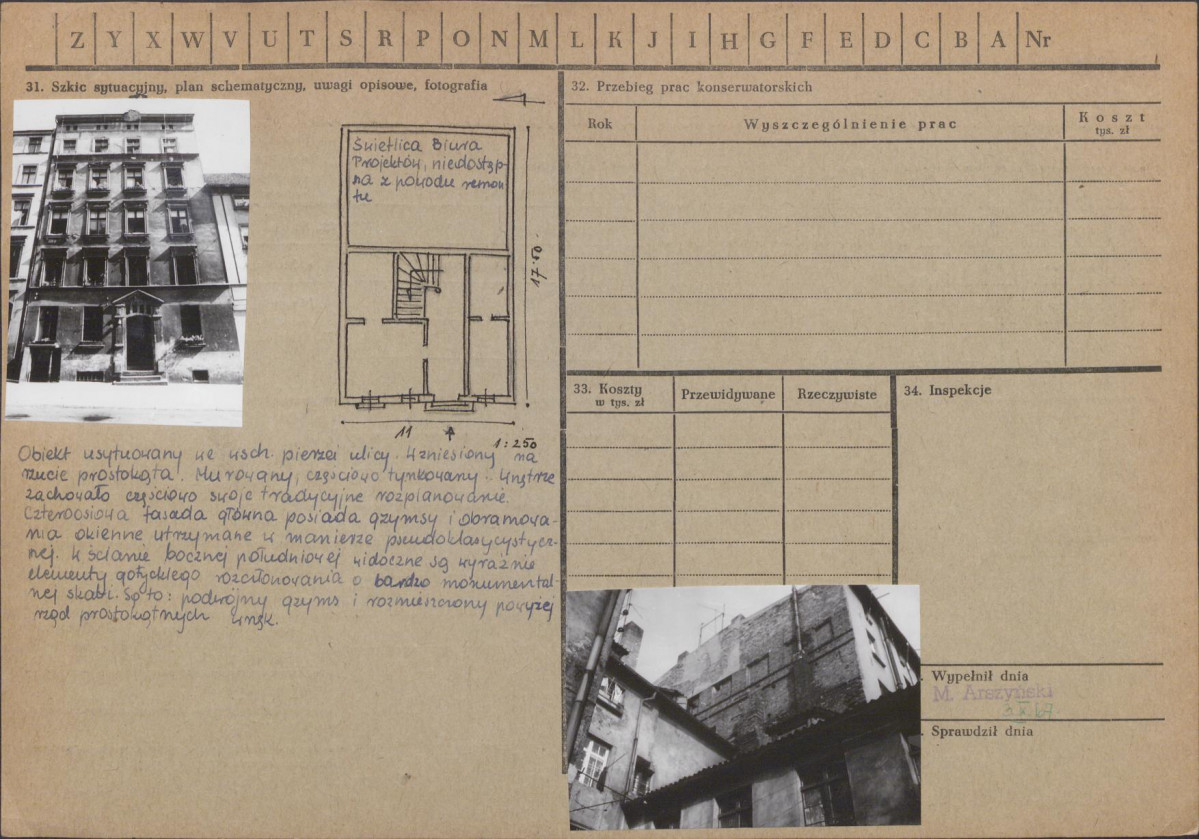 Z Y X W V U T S R P O N M L K J I H G F E D C B A Nr
31. Szkic sytuacyjny, plan schematyczny, uwagi opisowe, fotografia
Świetlica Biura
Projektów, niedostęp-
na z powodu remon-
tu
17.50
11
1:250
Obiekt usytuowany we wsch. pierzei ulicy. Wzniesiony na
rzucie prostokąta. Murowany, częściowo tynkowany. Wnętrze
zachowało częściowo swoje tradycyjne rozplanowanie.
Czteroosiowa fasada główna posiada gzymsy i obramowa-
nia okienne utrzymane w manierze pseudoklasycystycz-
nej. W ścianie bocznej południowej widoczne są wyraźnie
elementy gotyckiego rozczłonowania o bardzo monumental-
nej skali. Są to: podwójny gzyms i rozmieszczony powyżej
rząd prostokątnych wnęk.
32. Przebieg prac konserwatorskich
Rok
Wyszczególnienie prac
Koszt
tys. zł
33. Koszty
w tys. zł
Przewidywane
Rzeczywiste
34. Inspekcje
Wypełnił dnia
M. Arszyński
Sprawdził dnia